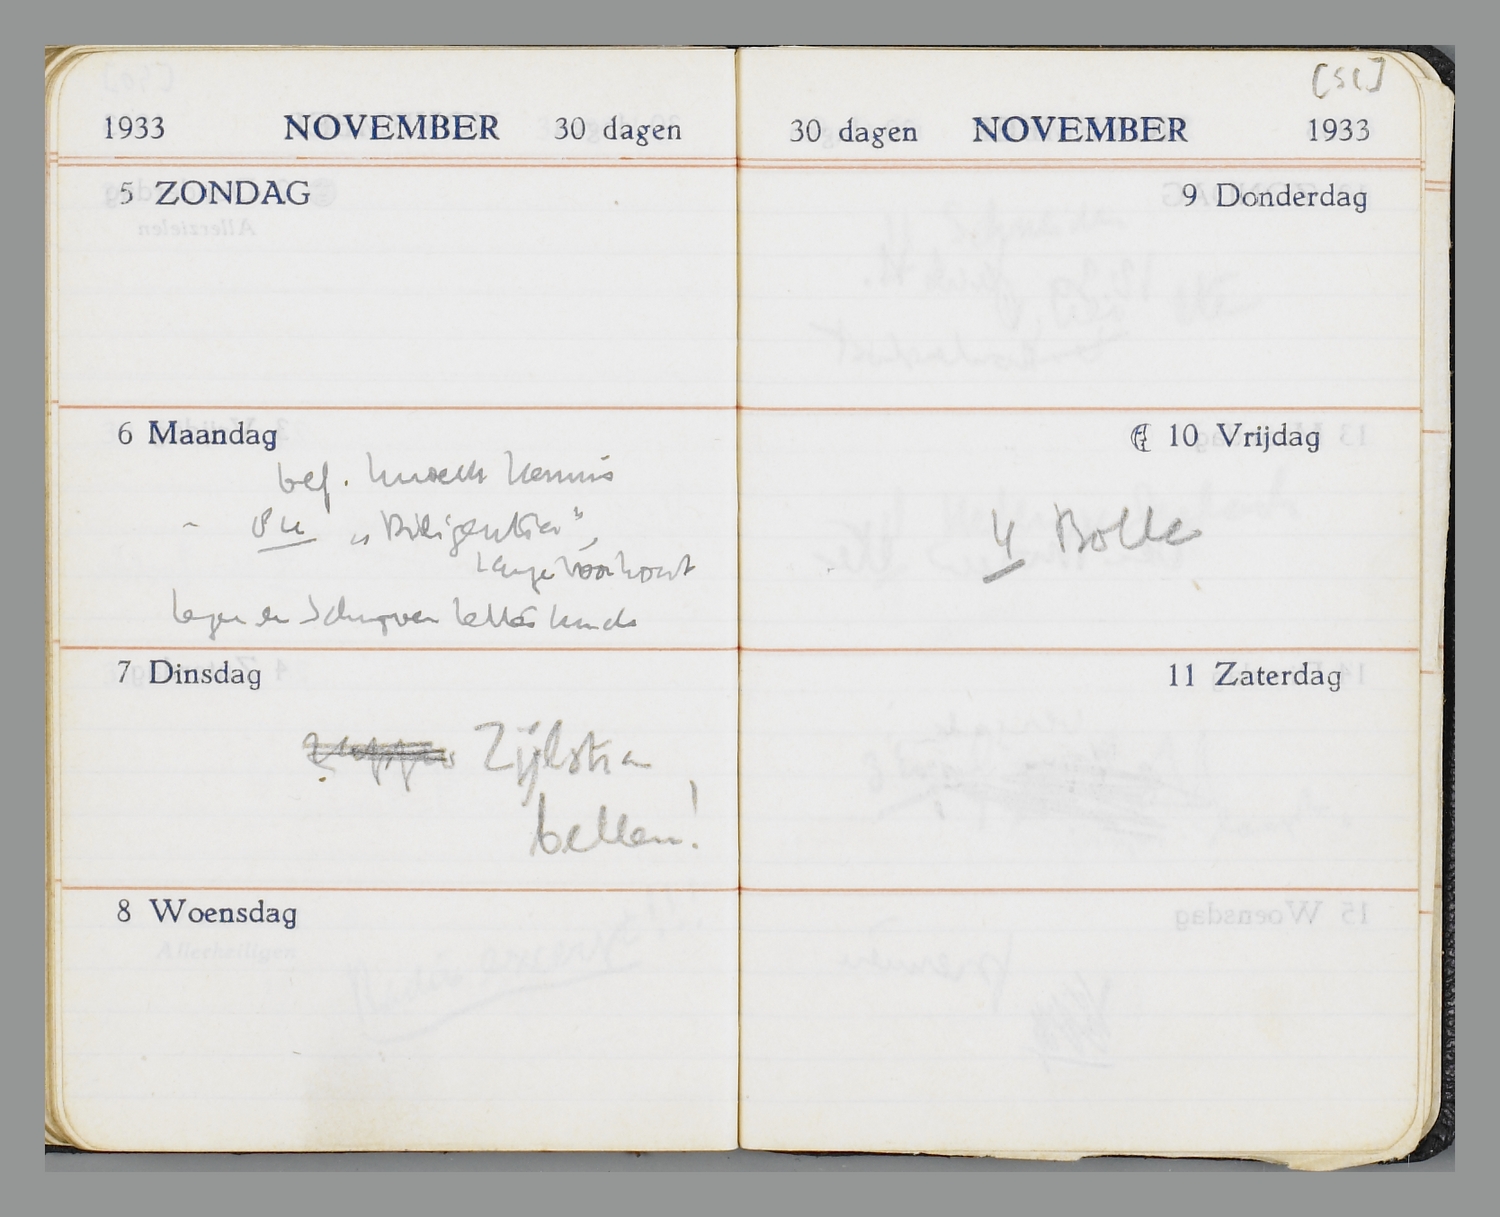 1933 NOVEMBER 30 dagen
5 ZONDAG
6 Maandag
8 u „Diligentia",
Lange Voorhout
7 Dinsdag
Zijlstra
bellen!
8 Woensdag
[51]
30 dagen NOVEMBER 1933
9 Donderdag
10 Vrijdag
4 Bolle
11 Zaterdag